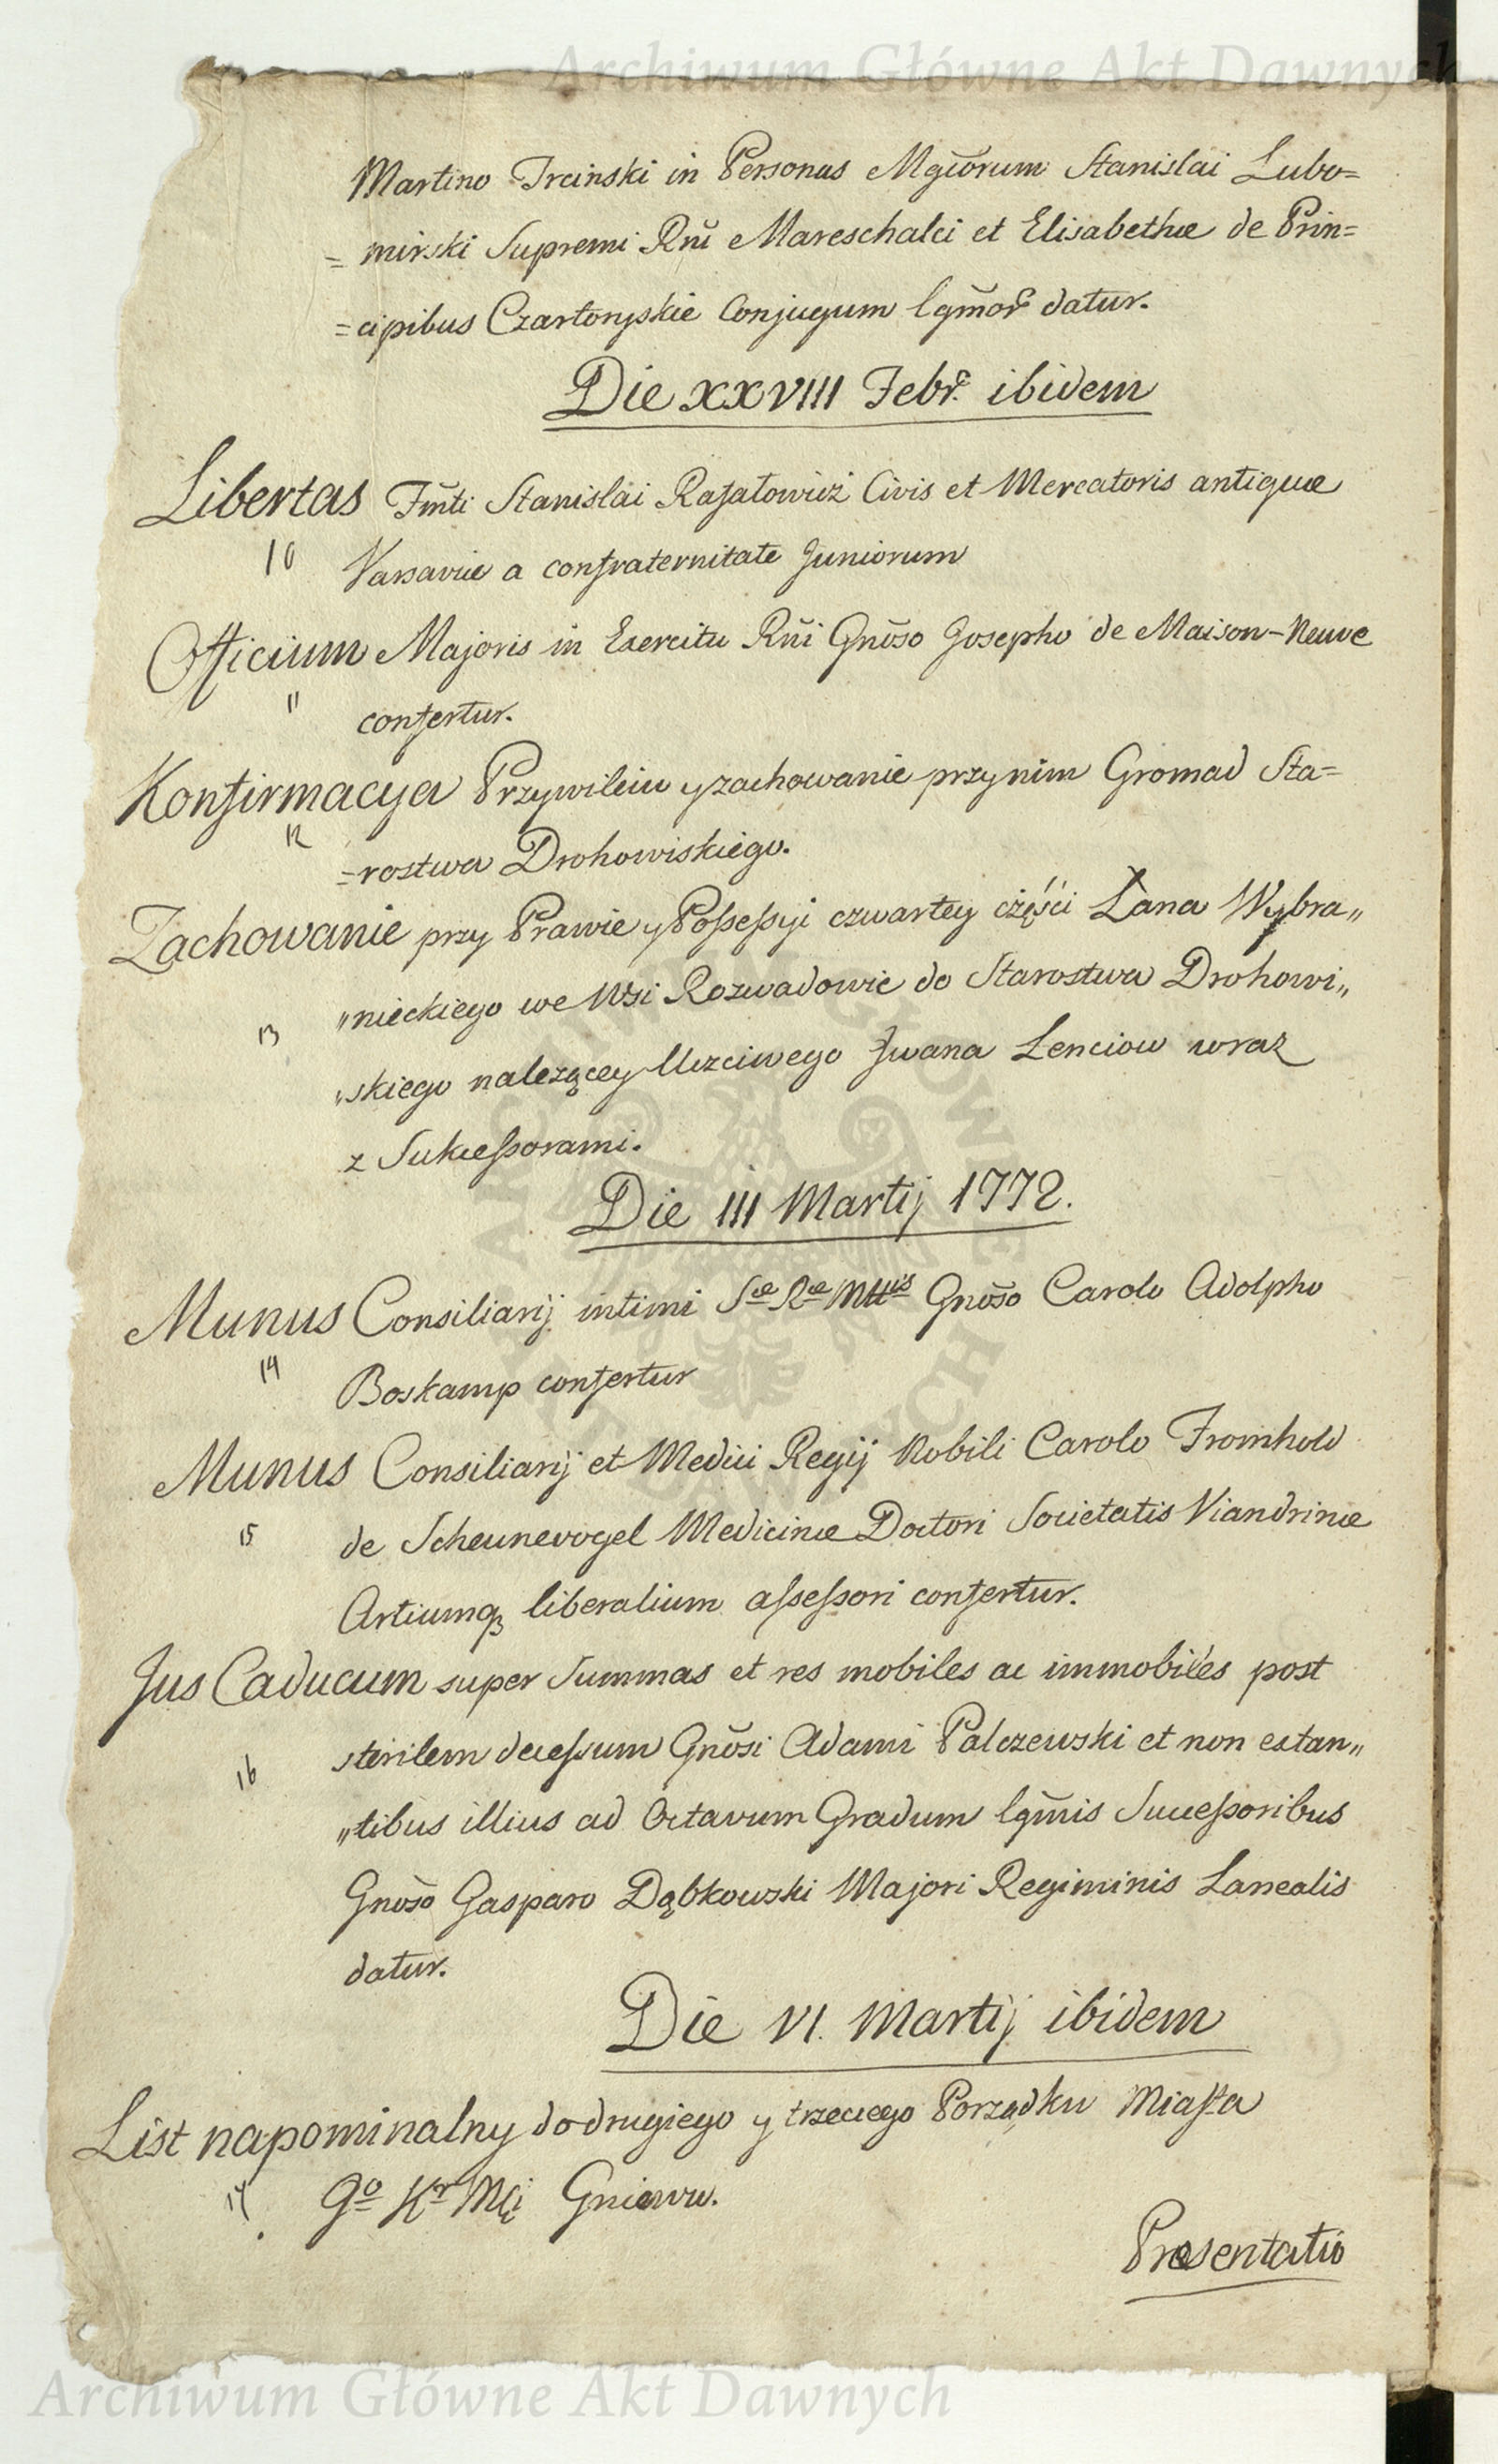 Archiwum Główne Akt Dawnych
Martino Trcinski in Personas Mgĩorum Stanislai Lubo=
= mirski Supremi Rnĩ Mareschalci et Elisabethæ de Prin=
=cipibus Czartoryskie Conjugum lgm̃or̃ datur.
Die XXVIII Febr̃. ibidem
Libertas Fm̃ti Stanislai Rafałowicz Civis et Mercatoris antiquæ
10 Varsaviæ a confraternitate Juniorum
Officium Majoris in Exercitu Rñi Gnõso Josepho de Maison-Neuve
11 confertur.
Konfirmacya Przywileiu y zachowanie przy nim Gromad Sta=
12
=rostwa Drohowiskiego.
Zachowanie przy Prawie y Possessyi czwartey części Łana Wybra„
„nieckiego we Wsi Rozwadowie do Starostwa Drohowi„
13
„skiego nalezącey Uczciwego Jwana Lenciow wraz
z Sukcessorami.
Die III Martij 1772.
Munus Consiliarij intimi Sæ Ræ Mttis Gnõso Carolo Adolpho
14 Boskamp confertur
Munus Consiliarij et Medici Regij Nobili Carolo Fromhold
15 de Scheunevogel Medicinæ Doctori Societatis Viandrinæ
Artiumqꝫ liberalium assessori confertur.
Jus Caducum super Summas et res mobiles ac immobiles post
16 sterilem decessum Gnõsi Adami Palczewski et non extan„
„tibus illius ad Octavum Gradum lgm̃is Successoribus
Gnõso Gasparo Dąbkowski Majori Regiminis Lanealis
datur.
Die VI. Martij ibidem
List napominalny do drugiego y trzeciego Porządku Miasta
17. Go Kr Mći Gniewu.
Præsentatio
Archiwum Główne Akt Dawnych
ARCHIWUM GŁÓWNE AKT DAWNYCH